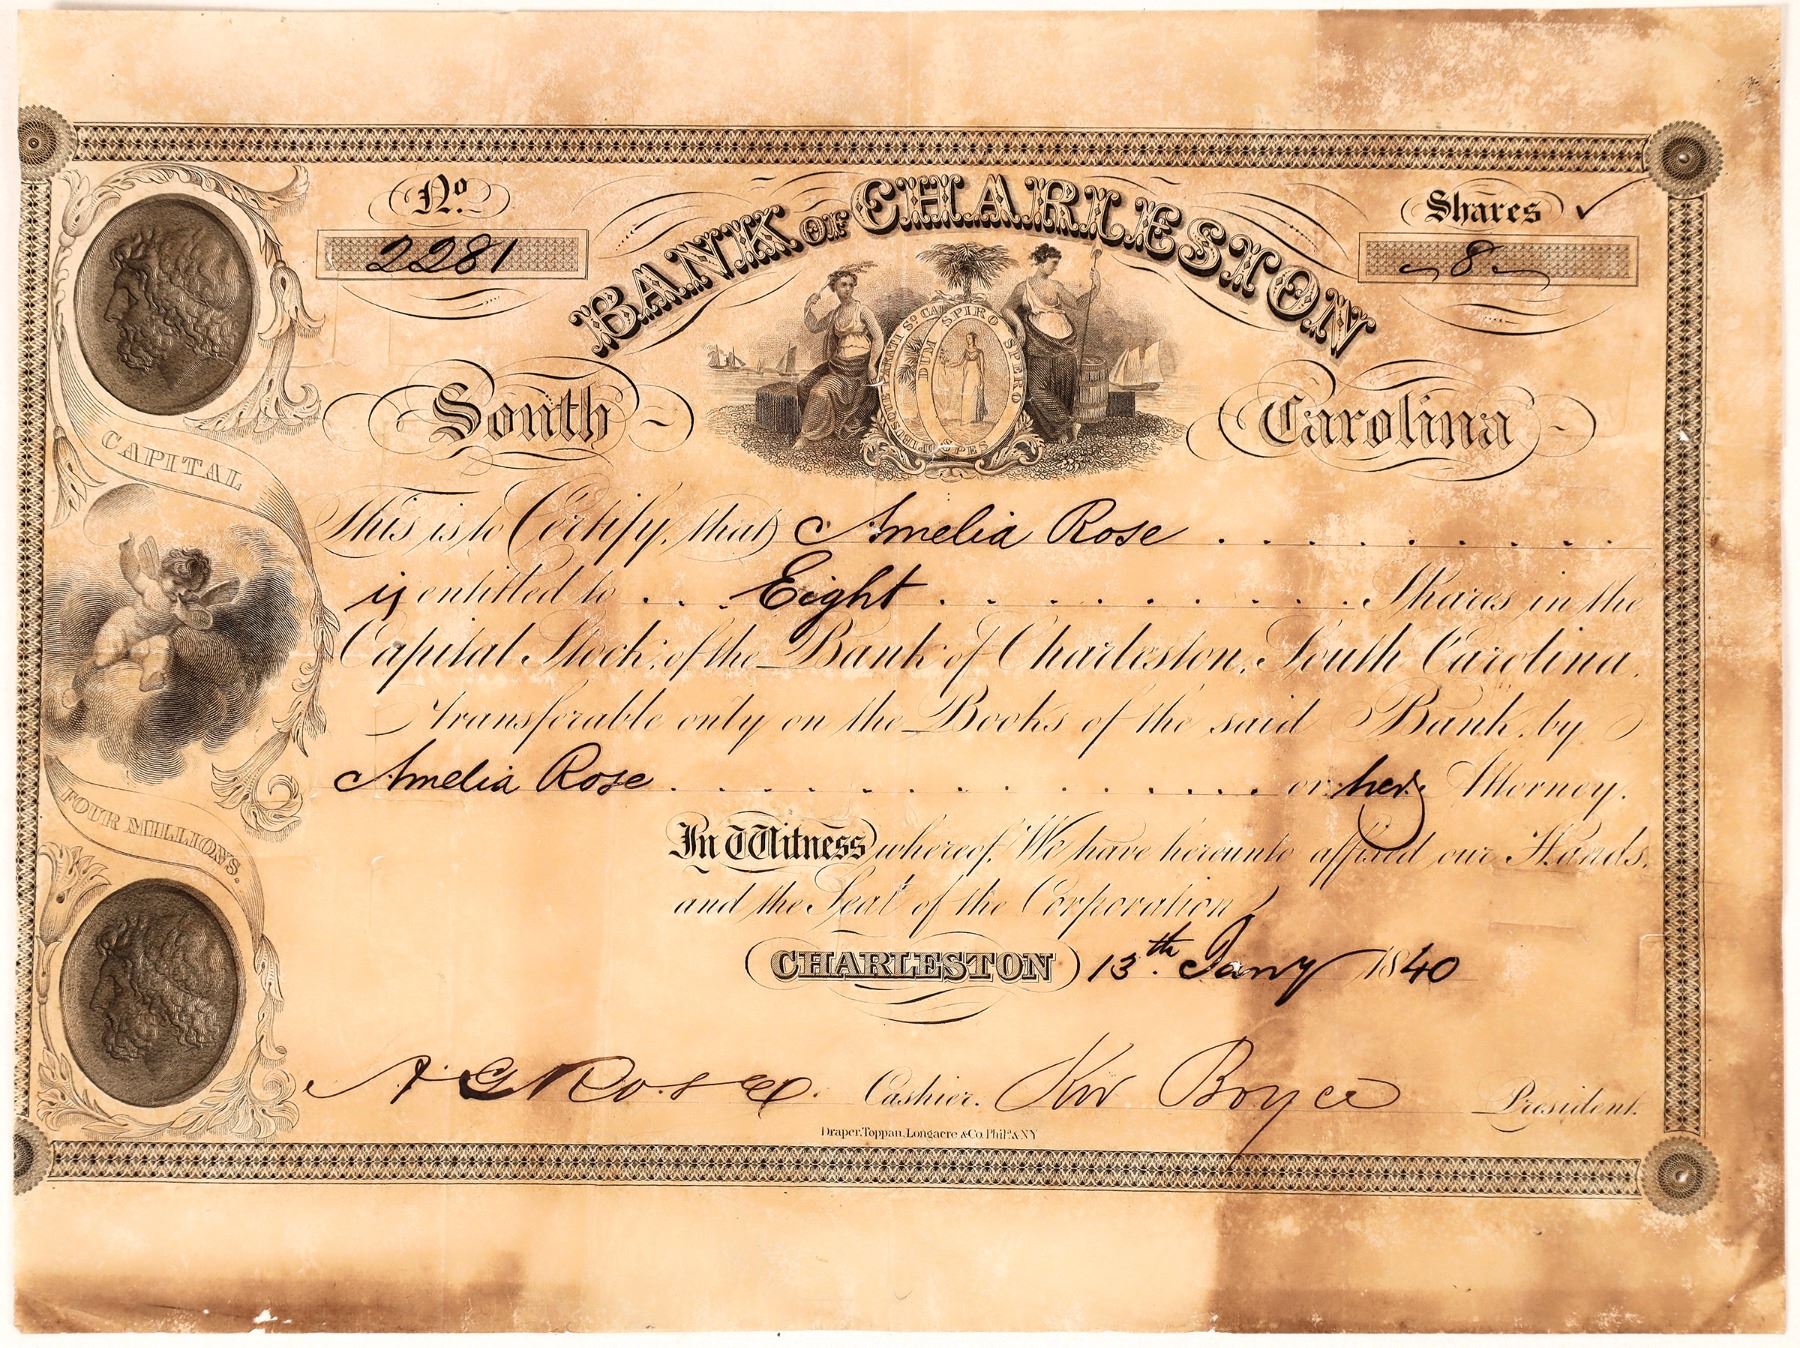 No. Shares ✓
2281 8
BANK OF CHARLESTON
South Carolina
ANIMIS OPIBUSQUE PARATI So. CA. DUM SPIRO SPERO SPES
CAPITAL
FOUR MILLIONS.
This is to Certify, that Amelia Rose
is entitled to Eight Shares in the
Capital Stock, of the Bank of Charleston, South Carolina,
transferable only on the Books of the said Bank, by
Amelia Rose or her Attorney.
In Witness whereof, We have hereunto affixed our Hands,
and the Seal of the Corporation
CHARLESTON 13th. Jany 1840
A G Rose Cashier. Ker Boyce President.
Draper, Toppan, Longacre & Co. Phila. & NY